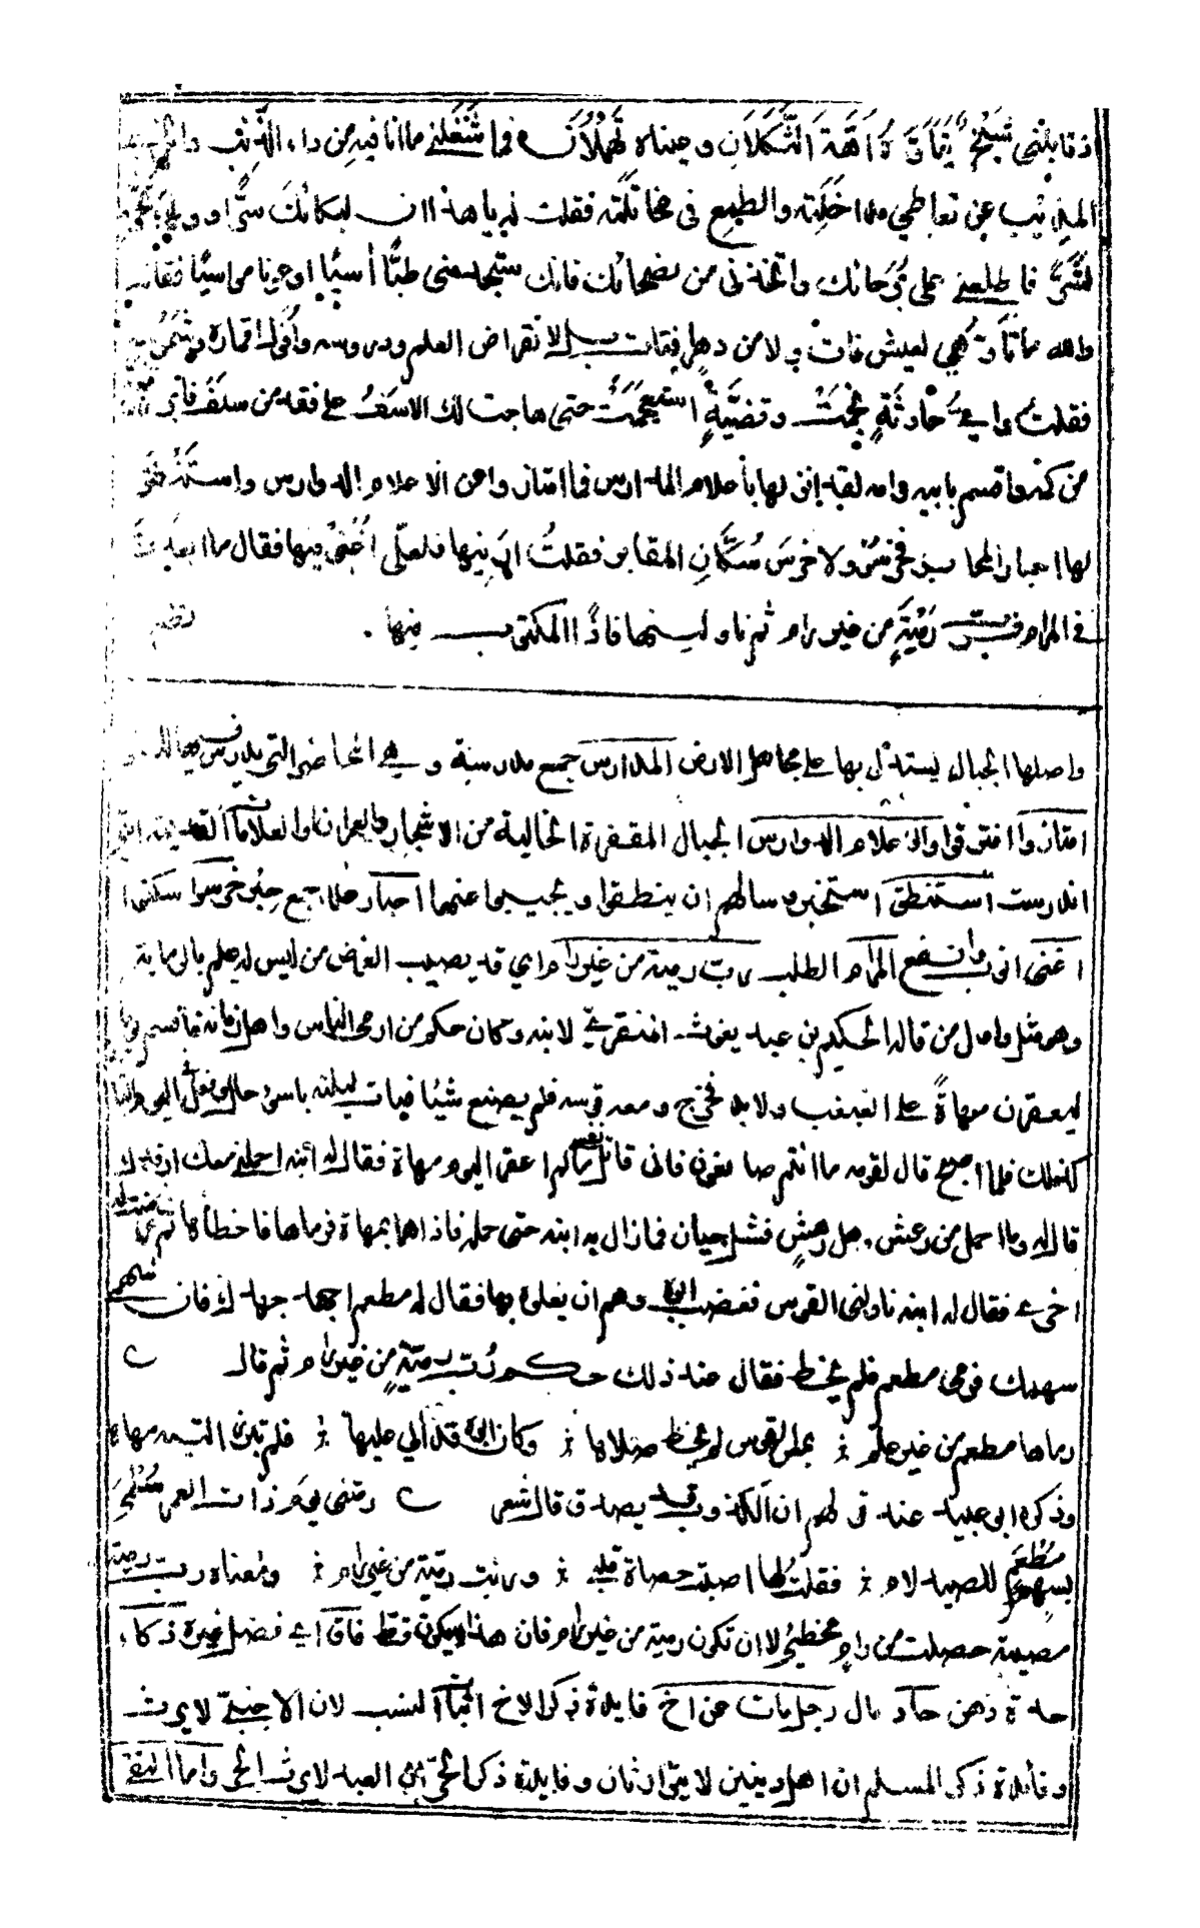 اذ قابلني شيخ يتأوه أهة الثكلان وعيناه تهملان فما شغلني ما انا فيه من داء الذئب
المذيب عن تعاطي مداخلته والطمع في مخاتلته فقلت له يا هذا ان لبكائك سرا ووراء
لشرا فاطلعني على برحائك واتخذني من نصحائك فانك ستجد مني طبا أسيا او عونا مواسيا فقال
والله ما تأوهي لعيش فات ولا من دهر افتات بل لانقراض العلم ودروسه وافول اقماره وشموسه
فقلت واي حادثة نجمت وقضية استعجمت حتى هاجت لك الاسف على فقد من سلف فابرز
من كمه واقسم بابيه وامه لقد انزلها باعلام المدارس فما امتازوا عن الاعلام الدوارس واستنطق
لها احبار المحابر فخرسوا ولا خرس سكان المقابر فقلت ارنيها فلعلي اغني فيها فقال ما ابعدت
في المرام فرب رمية من غير رام ثم ناولنيها فاذا المكتوب فيها . نظم
واصلها الجبال ليستدل بها على مجاهل الارض المدارس جمع مدرسة وهي المواضع التي يدرس فيها
امتازوا افترقوا والاعلام الدوارس الجبال المقفرة الخالية من الاشجار والعمران او العلامات القديمة التي
اندرست استنطق استخبر وسالهم ان ينطقوا ويجيبوا عنها احبار علما جمع حبر خرسوا سكتوا
اغنى انوب وانفع المرام الطلب رب رمية من غير رام اي قد يصيب الغرض من ليس له علم بالرماية
وهو مثل واول من قاله الحكيم بن عبد يغوث المنقري لابنه وكان حكم من ارمى الناس واهل زمانه فاقسم يوما
ليعقرن مهاة على الغبغب ولا بد فخرج ومعه قوسه فلم يصنع شيئا فبات ليلته باسوئ حال وفعل اليوم الثاني
كذلك فلما اصبح قال لقومه ما انتم صانعون فاني قاتل نفسي ان لم اعقر اليوم مهاة فقال له ابنه احملني معك ارفدك
قال له وما احمل من رعش وهل رعش فشل جبان فما زال به ابنه حتى حمله فاذا هما بمهاة فرماها فاخطأها ثم عرضت له
اخرى فقال له ابنه ناولني القوس فغضب ابوه وهم ان يعلوه بها فقال له مطعم احمد حمدك فان سهمي
سهمك فرمى مطعم فلم يخط فقال عند ذلك حكم رب رمية من غير رام ثم قال
رماها مطعم من غير علم ؛ بحمل القوس لم يخط صلاها ؛ وكان ابوه قد آلى عليها ؛ فلم تبرر اليته مهاه
وذكره ابو عبيد عند قولهم ان الكذوب قد يصدق قال شعر رمتني يوم ذات الغمر سلمى
بسهم مطعم للصيد لام ؛ فقلت لها اصبت حصاة قلبي ؛ وربت رمية من غير رام ؛ ومعناه رب رمية
مصيبة حصلت من رام مخطئ لا ان تكون رمية من غير رام فان هذا لا يكون قط فاق اي فضل غيره ذكاء
حدة ذهن حاد مال رجل مات عن اخ فايدة ذكر الاخ اثبات النسب لان الاجنبي لا يرث
وفائدة ذكر المسلم ان اهل دينين لا يتوارثان وفايدة ذكر الحر ان العبد لا يرث الحر واما التقى